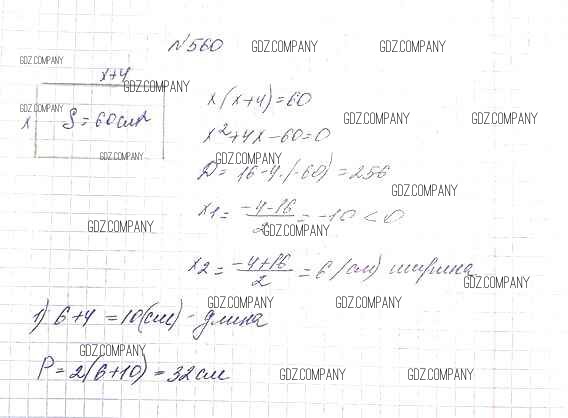 №560
GDZ.COMPANY GDZ.COMPANY
GDZ.COMPANY
x+4
GDZ.COMPANY
x(x+4)=60
GDZ.COMPANY
x S=60см²
GDZ.COMPANY GDZ.COMPANY
x²+4x-60=0
GDZ.COMPANY GDZ.COMPANY
D=16-4·(-60)=256
GDZ.COMPANY
x1=(-4-16)/2=-10<0
GDZ.COMPANY GDZ.COMPANY
x2=(-4+16)/2=6(см) ширина
GDZ.COMPANY
GDZ.COMPANY GDZ.COMPANY
1) 6+4=10(см)-длина
GDZ.COMPANY
P=2(6+10)=32см
GDZ.COMPANY GDZ.COMPANY